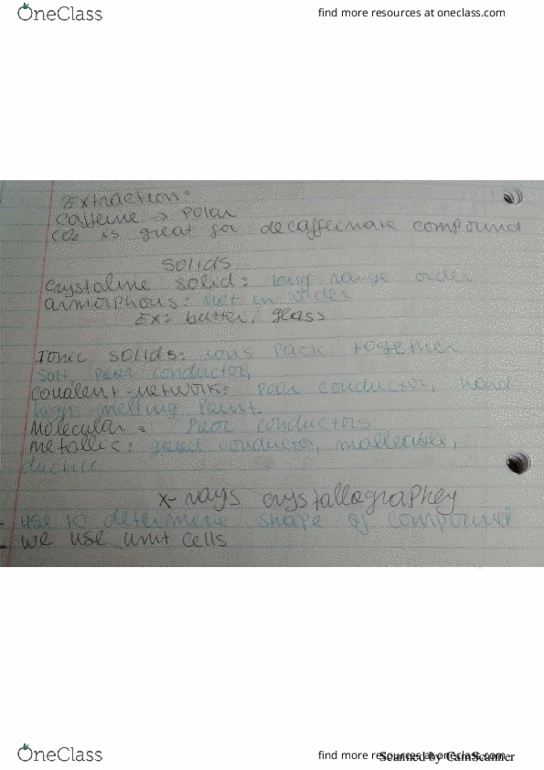 OneClass
find more resources at oneclass.com
Extraction:
Caffeine → Polar
CO2 is great for decaffeinate compound
Solids
Crystaline solid: long range order
armorphous: not in order
Ex: butter, glass
Ionic solids: ions pack together
Salt poor conductor,
Covalent-network: Poor conductor, hard
high melting point.
Molecular: Poor conductors
metallic: good conductor, malleable,
ductile
X-rays crystallographey
- use to determine shape of compound
- we use unit cells
OneClass
find more resources at oneclass.com
Scanned by CamScanner